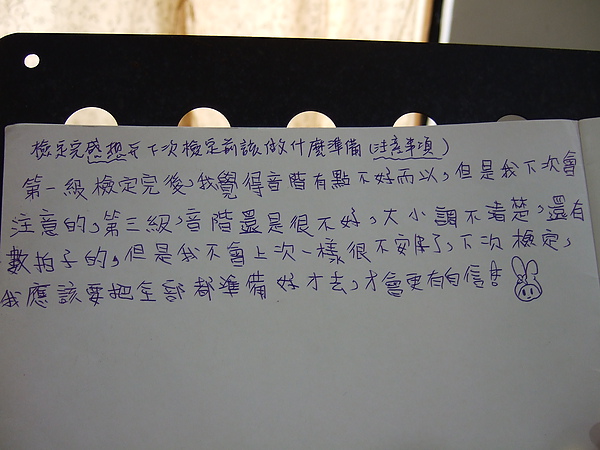 檢定完感想和下次檢定前該做什麼準備(注意事項)
第一級檢定完後,我覺得音階有點不好而以,但是我下次會
注意的,第三級,音階還是很不好,大小調不清楚,還有
數拍子的,但是我不會上次一樣很不安了,下次檢定,
我應該要把全部都準備好才去,才會更有自信!